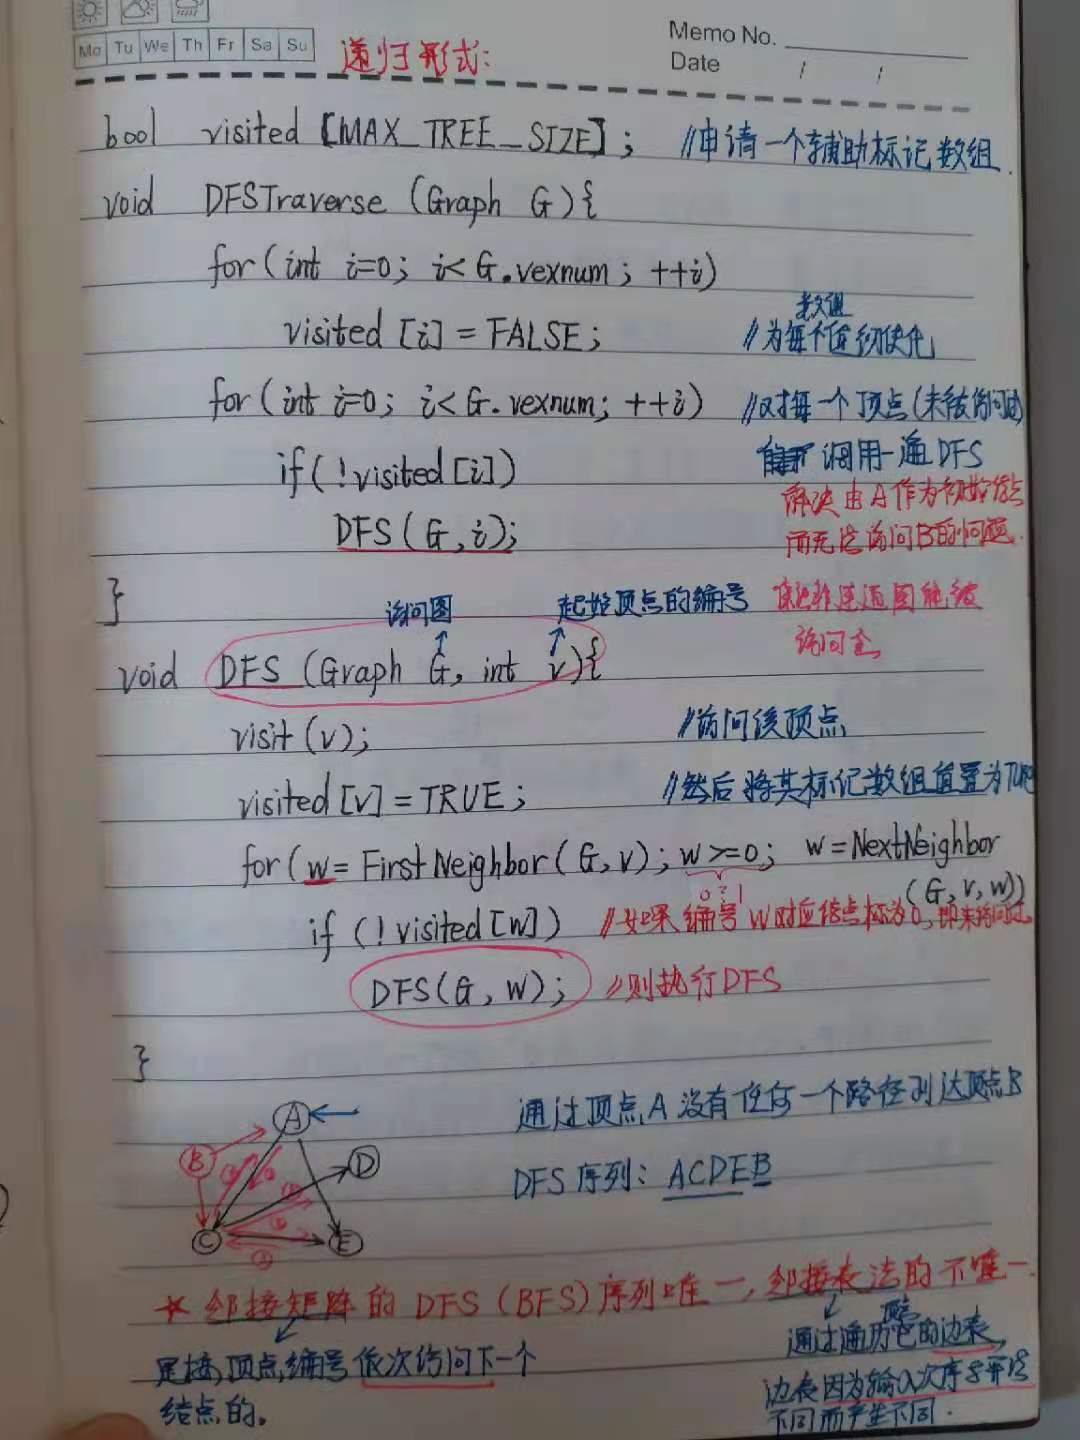 Mo Tu We Th Fr Sa Su
递归形式:
Memo No.
Date / /
bool visited [MAX_TREE_SIZE]; //申请一个辅助标记数组.
void DFSTraverse (Graph G){
for(int i=0; i<G.vexnum; ++i)
数组
visited [i] = FALSE; //为每个值初使化
for(int i=0; i<G.vexnum; ++i) //对每一个顶点(未被访问过)
if(!visited[i]) 调用一遍DFS
解决由A作为初始结点
DFS(G,i); 而无法访问B的问题.
}
访问图 起始顶点的编号 非连通图能被
访问全
void DFS (Graph G, int v){
visit(v); //访问该顶点
visited[v]=TRUE; //然后将其标记数组值置为TURE
for(w=FirstNeighbor(G,v); w>=0; w=NextNeighbor
(G,v,w))
0?1
if(!visited[w]) //如果编号W对应结点标为0,即未访问过
DFS(G,w); //则执行DFS
}
A
B
C
D
E
通过顶点A没有任何一个路径到达顶点B
DFS序列: ACDEB
★ 邻接矩阵的DFS(BFS)序列唯一,邻接表法的不唯一.
是按顶点编号依次访问下一个
结点的。
通过遍历它的边表,
边表因为输入次序
不同而产生不同.